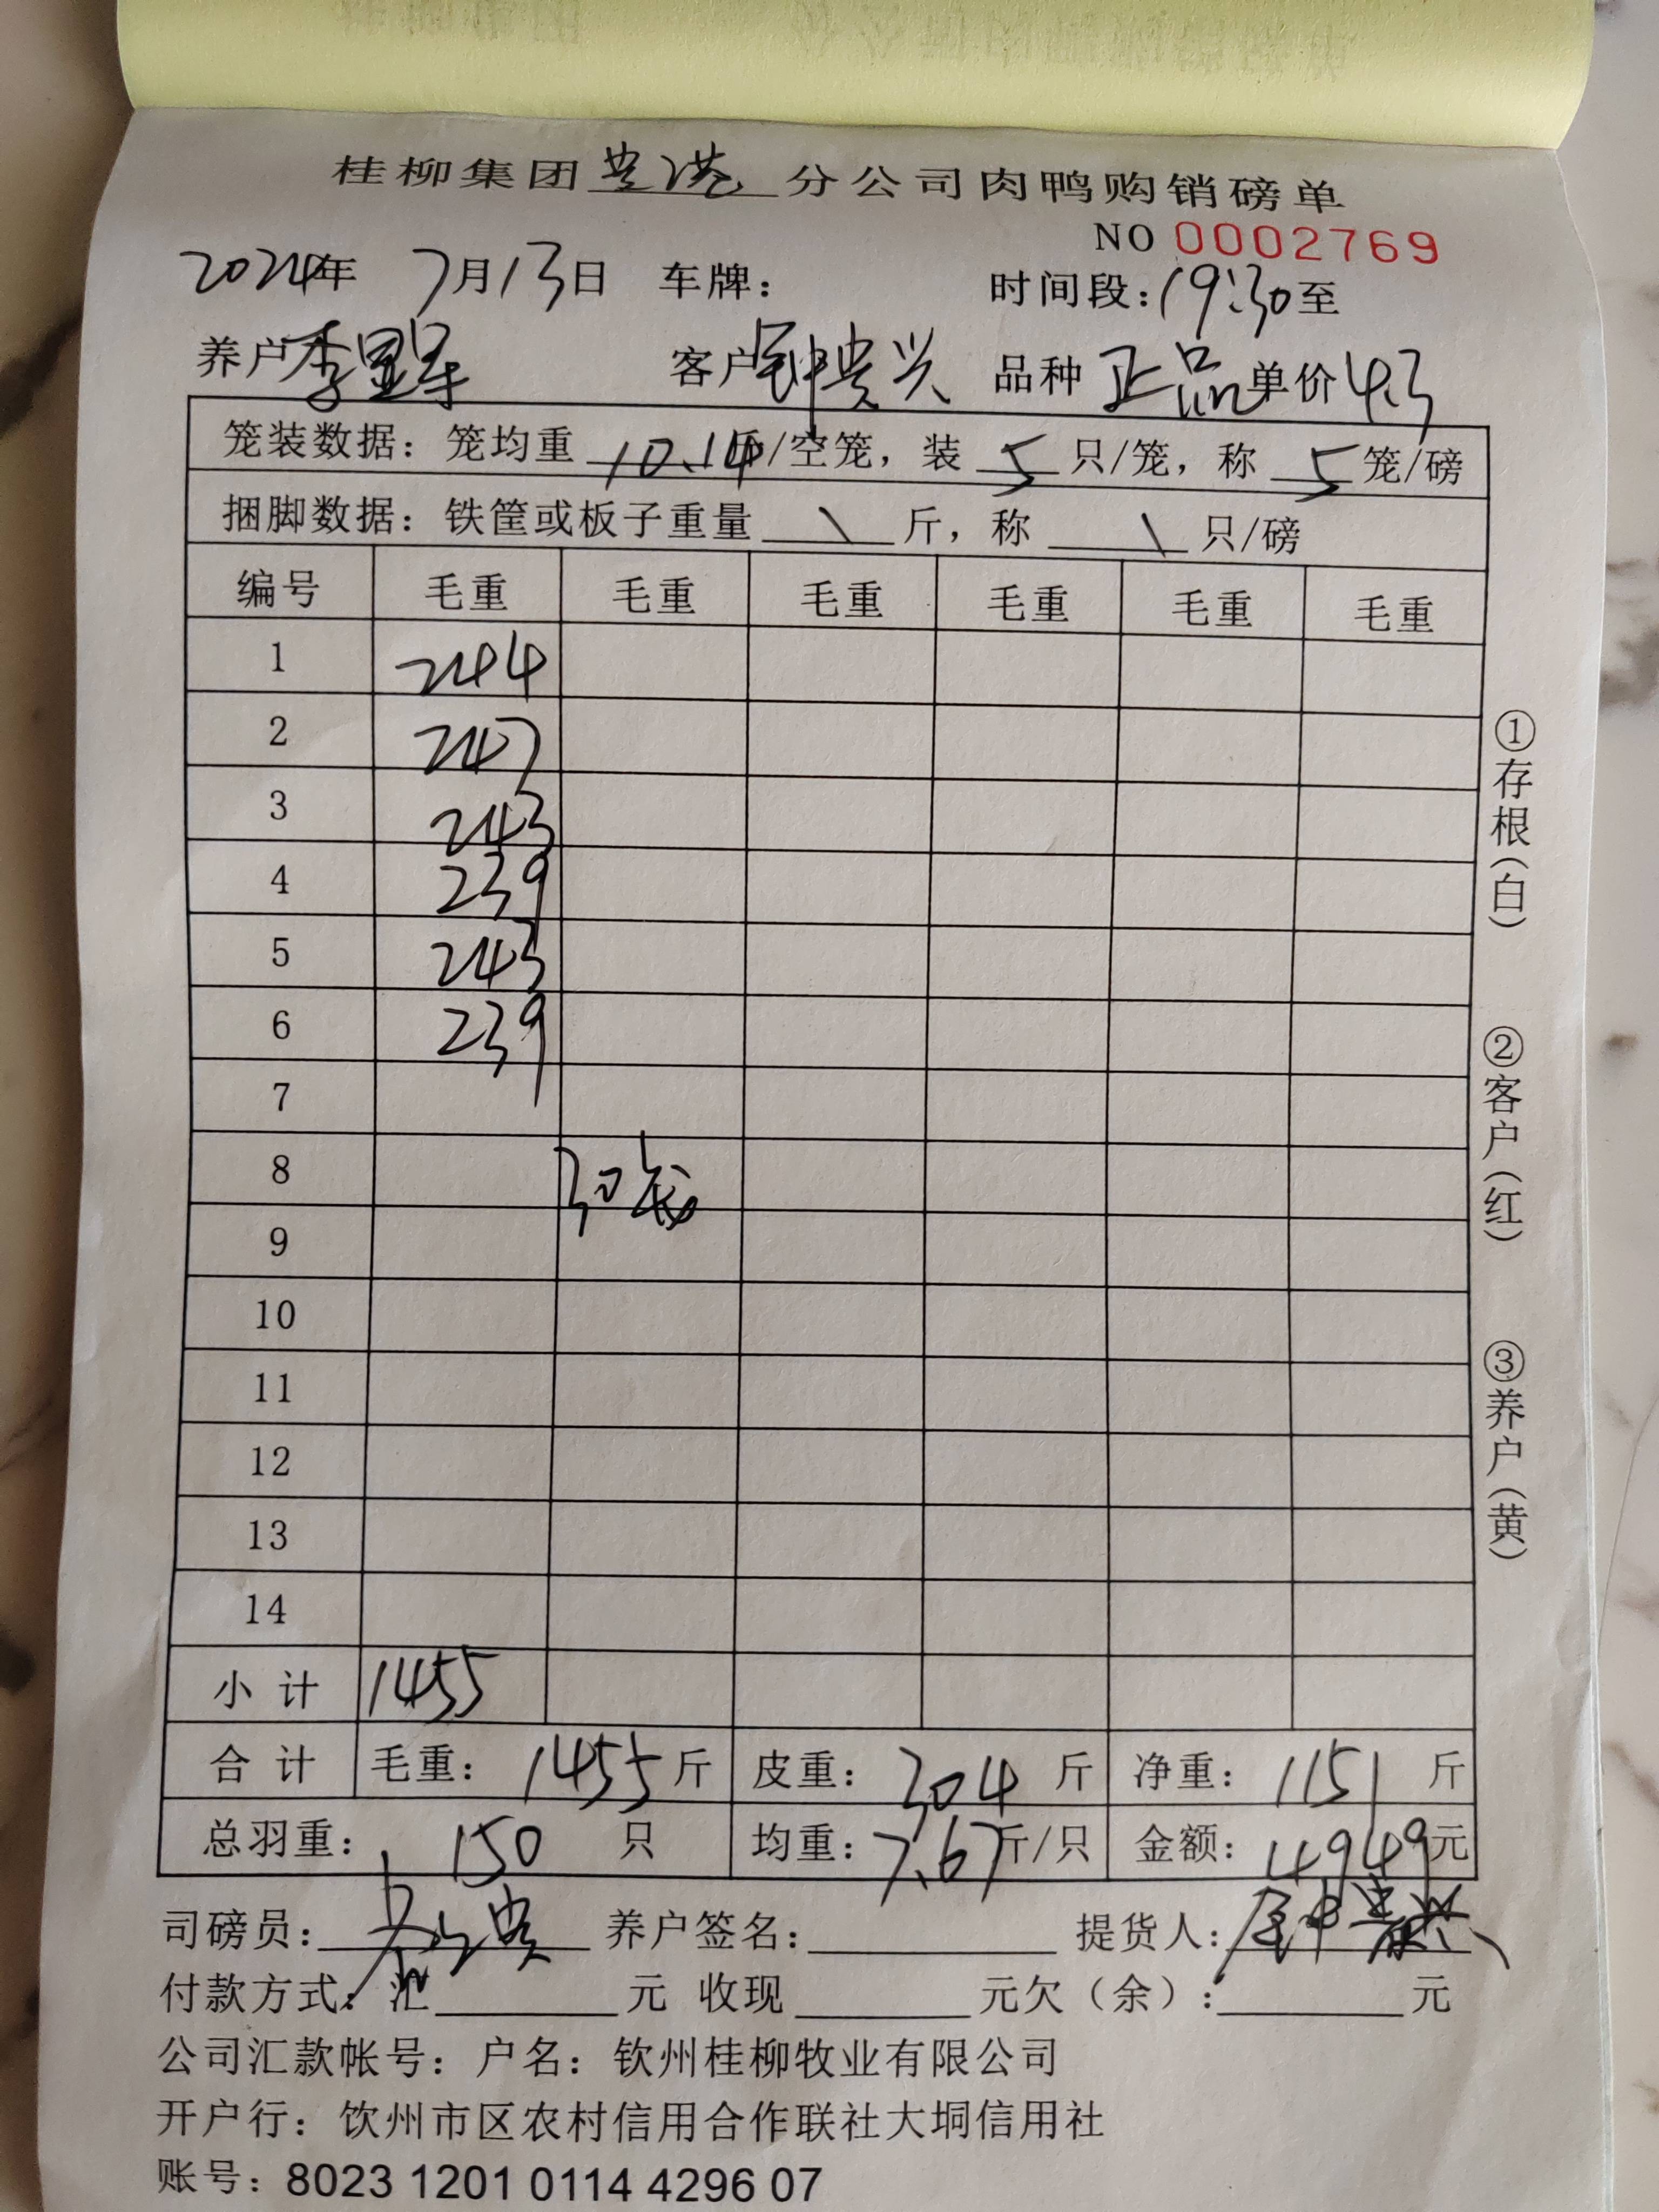 桂柳集团贵港分公司肉鸭购销磅单
NO 0002769
2024年 7月13日 车牌: 时间段:19:30至
养户 李显军 客户 钟贵兴 品种 正品 单价 4.3
笼装数据：笼均重 10.14斤/空笼，装 5 只/笼，称 5 笼/磅
捆脚数据：铁筐或板子重量 \ 斤，称 \ 只/磅
编号 毛重 毛重 毛重 毛重 毛重 毛重
1 244
2 247
3 243
4 239
5 243
6 239
7
8 30笼
9
10
11
12
13
14
小计 1455
合计 毛重：1455斤 皮重：304 斤 净重：1151 斤
总羽重：150 只 均重：7.67斤/只 金额：4949元
司磅员: 养户签名: 提货人: 钟贵兴
付款方式：汇 元 收现 元欠（余）: 元
公司汇款帐号：户名：钦州桂柳牧业有限公司
开户行：饮州市区农村信用合作联社大垌信用社
账号：8023 1201 0114 4296 07
①存根（白）
②客户（红）
③养户（黄）